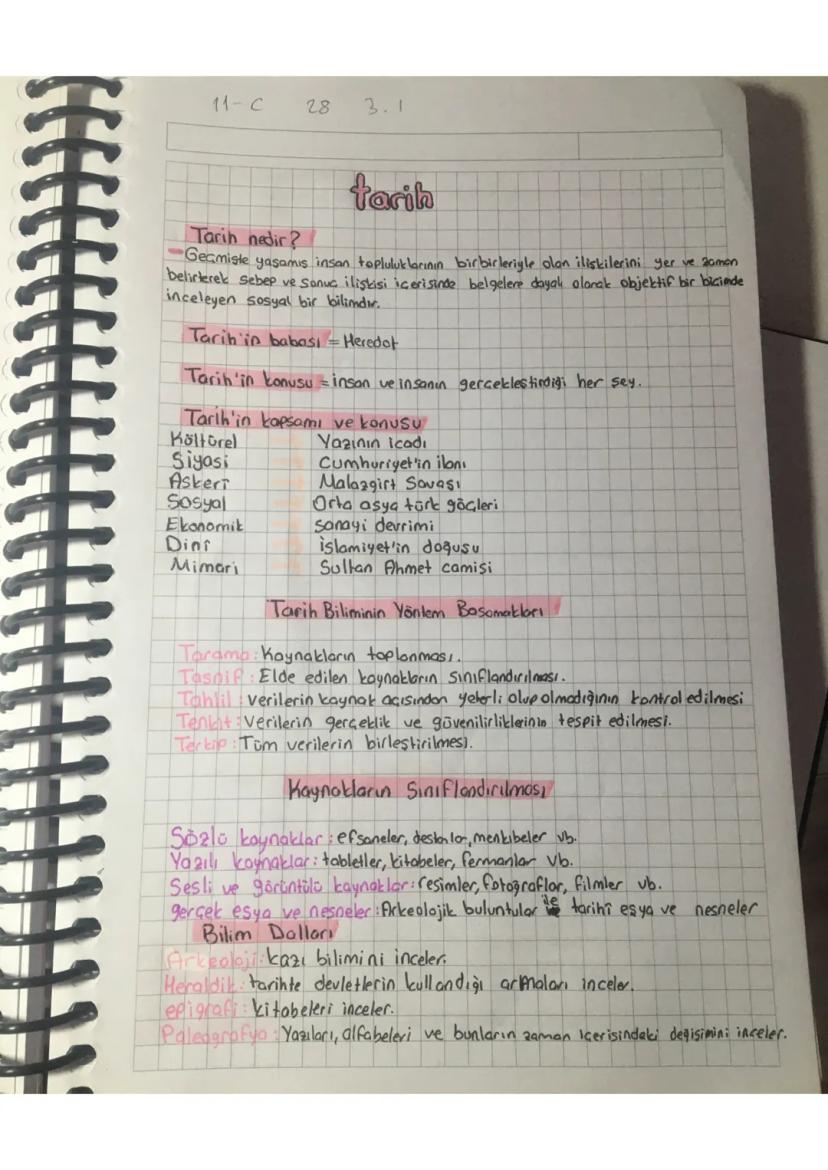 11-C 28 3.1
tarih
Tarih nedir?
-Geçmişte yaşamış insan topluluklarının birbirleriyle olan ilişkilerini yer ve zaman
belirterek sebep ve sonuç ilişkisi içerisinde belgelere dayalı olarak objektif bir biçimde
inceleyen sosyal bir bilimdir.
Tarih'in babası = Heredot
Tarih'in konusu = insan ve insanın gerçekleştirdiği her şey.
Tarih'in kapsamı ve konusu
Kültürel → Yazının icadı
Siyasi → Cumhuriyet'in ilanı
Askerî → Malazgirt Savaşı
Sosyal → Orta asya türk göçleri
Ekonomik → sanayi devrimi
Dinî → İslamiyet'in doğuşu
Mimari → Sultan Ahmet camisi
Tarih Biliminin Yöntem Basamakları
Tarama: Kaynakların toplanması.
Tasnif: Elde edilen kaynakların sınıflandırılması.
Tahlil: verilerin kaynak açısından yeterli olup olmadığının kontrol edilmesi
Tenkit: Verilerin gerçeklik ve güvenilirliklerinin tespit edilmesi.
Terkip: Tüm verilerin birleştirilmesi.
Kaynakların Sınıflandırılması
Sözlü kaynaklar: efsaneler, destanlar, menkıbeler vb.
Yazılı kaynaklar: tabletler, kitabeler, fermanlar vb.
Sesli ve görüntülü kaynaklar: resimler, fotoğraflar, filmler vb.
gerçek eşya ve nesneler: Arkeolojik buluntular ile tarihî eşya ve nesneler
Bilim Dalları
Arkeoloji: kazı bilimini inceler.
Heraldik: tarihte devletlerin kullandığı armaları inceler.
epigrafi: kitabeleri inceler.
Paleografya: Yazıları, alfabeleri ve bunların zaman içerisindeki değişimini inceler.